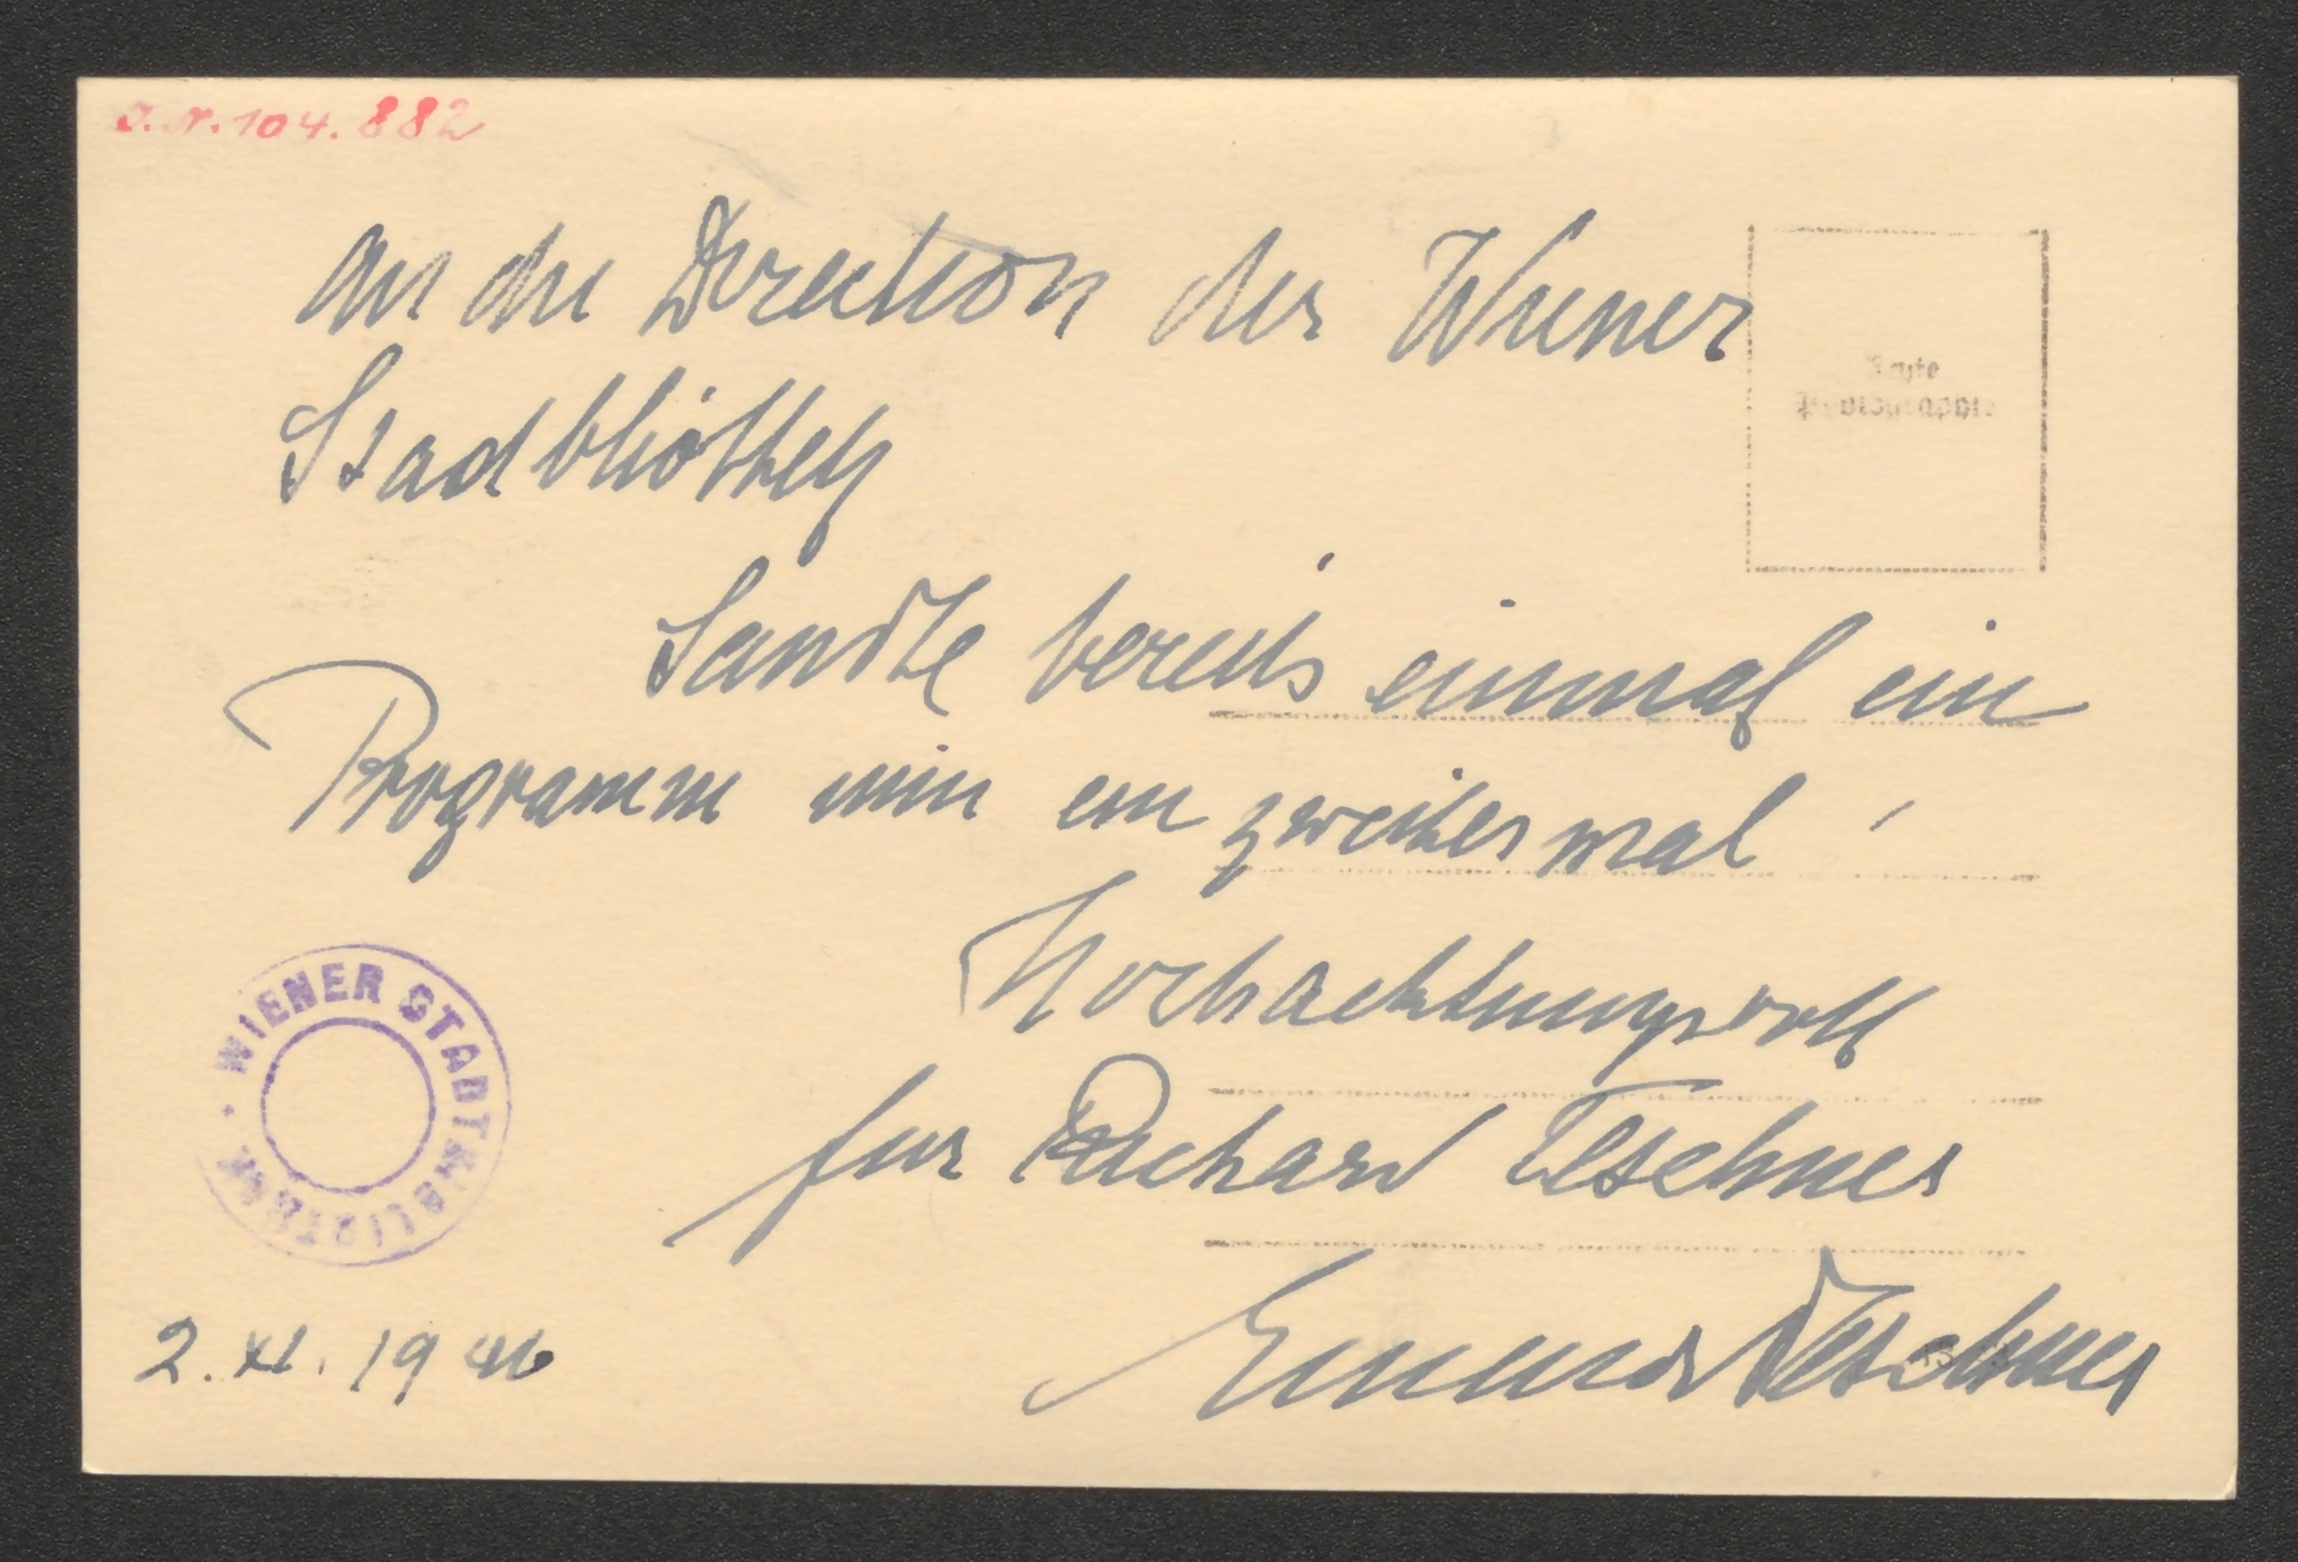 J.N. 104.882
An die Direction der Wiener
Stadbliothek
Echte
Photographie
Sandte bereits einmal ein
Programm nun ein zweites mal
Hochachtungsvoll
für Richard Teschner
Emma Teschner
WIENER STADTBIBLIOTHEK
2. XI. 1946